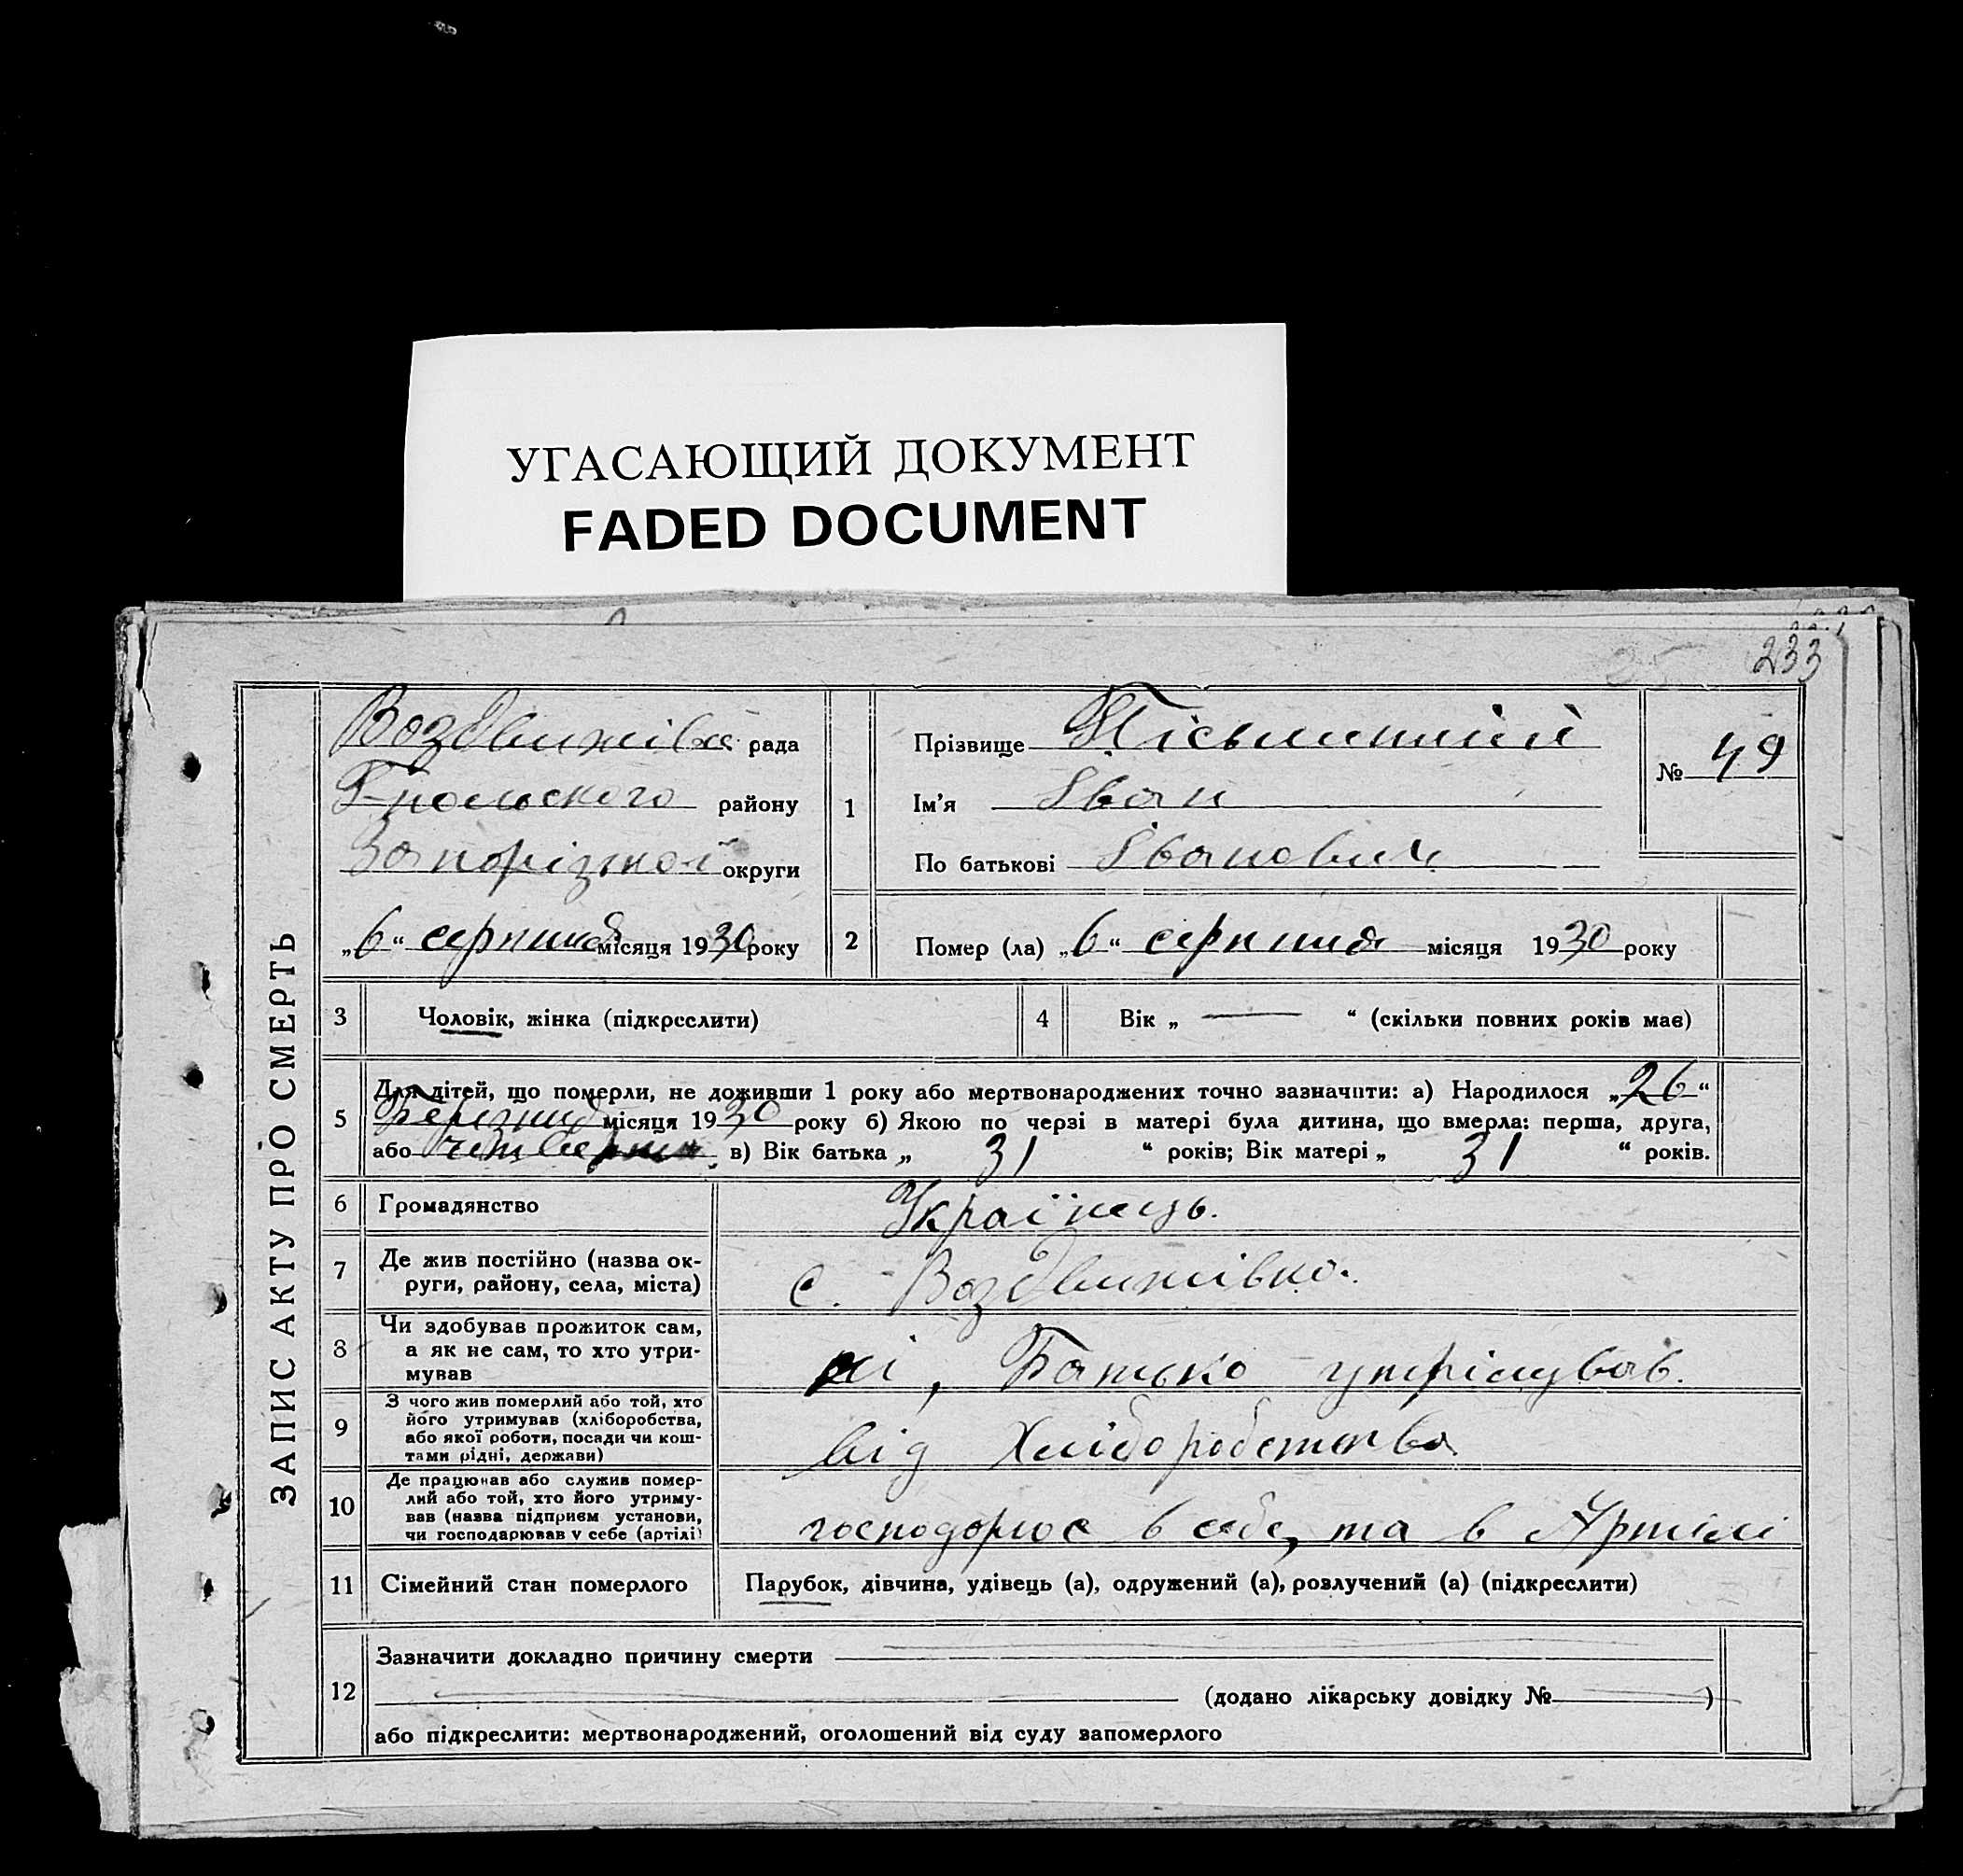 УГАСАЮЩИЙ ДОКУМЕНТ
FADED DOCUMENT
233
ЗАПИС АКТУ ПРО СМЕРТЬ
Воздвижівка рада
Г-польского району
Запорізької округи
„6“ серпния місяця 1930 року
1
Прізвище Пісьмитний
Ім'я Іван
По батькові Іванович
№ 49
2
Помер (ла) „6“ серпния місяця 1930 року
3
Чоловік, жінка (підкреслити)
4
Вік „ — “ (скільки повних років має)
5
Для дітей, що померли, не доживши 1 року або мертвонароджених точно зазначити: а) Народилося „26“
Березния місяця 1930 року б) Якою по черзі в матері була дитина, що вмерла: перша, друга,
або четверта, в) Вік батька „ 31 “ років; Вік матері „ 31 “ років.
6
Громадянство
Українець.
7
Де жив постійно (назва ок-
руги, району, села, міста)
с. Воздвижівка.
8
Чи здобував прожиток сам,
а як не сам, то хто утри-
мував
ні, Батько утрімував.
9
З чого жив померлий або той, хто
його утримував (хліборобства,
або якої роботи, посади чи кош-
тами рідні, держави)
від Хліборобства
10
Де працював або служив помер-
лий або той, хто його утриму-
вав (назва підприєм установи,
чи господарював у себе (артілі)
господарює в себе, та в Артілі
11
Сімейний стан померлого
Парубок, дівчина, удівець (а), одружений (а), розлучений (а) (підкреслити)
12
Зазначити докладно причину смерти
(додано лікарську довідку № )
або підкреслити: мертвонароджений, оголошений від суду запомерлого